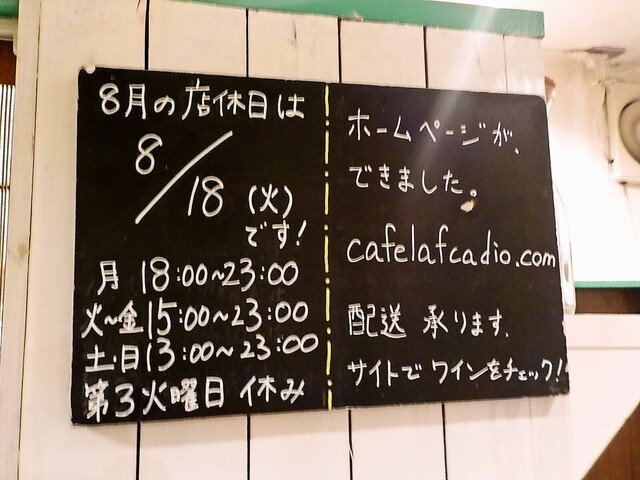 8月の店休日は
8/18 (火)
です!
月 18:00~23:00
火~金 15:00~23:00
土・日 13:00~23:00
第3火曜日 休み
ホームページが、
できました。
cafelafcadio.com
配送 承ります。
サイトで ワインをチェック!